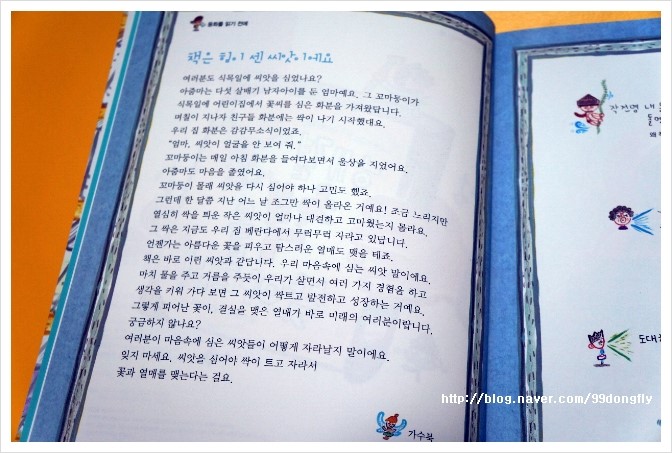 동화를 읽기 전에
책은 힘이 센 씨앗이에요
여러분도 식목일에 씨앗을 심었나요?
아줌마는 다섯 살배기 남자아이를 둔 엄마예요. 그 꼬마둥이가
식목일에 어린이집에서 꽃씨를 심은 화분을 가져왔답니다.
며칠이 지나자 친구들 화분에는 싹이 나기 시작했대요.
우리 집 화분은 감감무소식이었죠.
"엄마, 씨앗이 얼굴을 안 보여 줘."
꼬마둥이는 매일 아침 화분을 들여다보면서 울상을 지었어요.
아줌마도 마음을 졸였어요.
꼬마둥이 몰래 씨앗을 다시 심어야 하나 고민도 했죠.
그런데 한 달쯤 지난 어느 날 조그만 싹이 올라온 거예요! 조금 느리지만
열심히 싹을 틔운 작은 씨앗이 얼마나 대견하고 고마웠는지 몰라요.
그 싹은 지금도 우리 집 베란다에서 무럭무럭 자라고 있답니다.
언젠가는 아름다운 꽃을 피우고 탐스러운 열매도 맺을 테죠.
책은 바로 이런 씨앗과 같답니다. 우리 마음속에 심는 씨앗 말이에요.
마치 물을 주고 거름을 주듯이 우리가 살면서 여러 가지 경험을 하고
생각을 키워 가다 보면 그 씨앗이 싹트고 발전하고 성장하는 거예요.
그렇게 피어난 꽃이, 결실을 맺은 열매가 바로 미래의 여러분이랍니다.
궁금하지 않나요?
여러분이 마음속에 심은 씨앗들이 어떻게 자라날지 말이에요.
잊지 마세요. 씨앗을 심어야 싹이 트고 자라서
꽃과 열매를 맺는다는 걸요.
가수북
작전명 내
도대
http://blog.naver.com/99dongfly